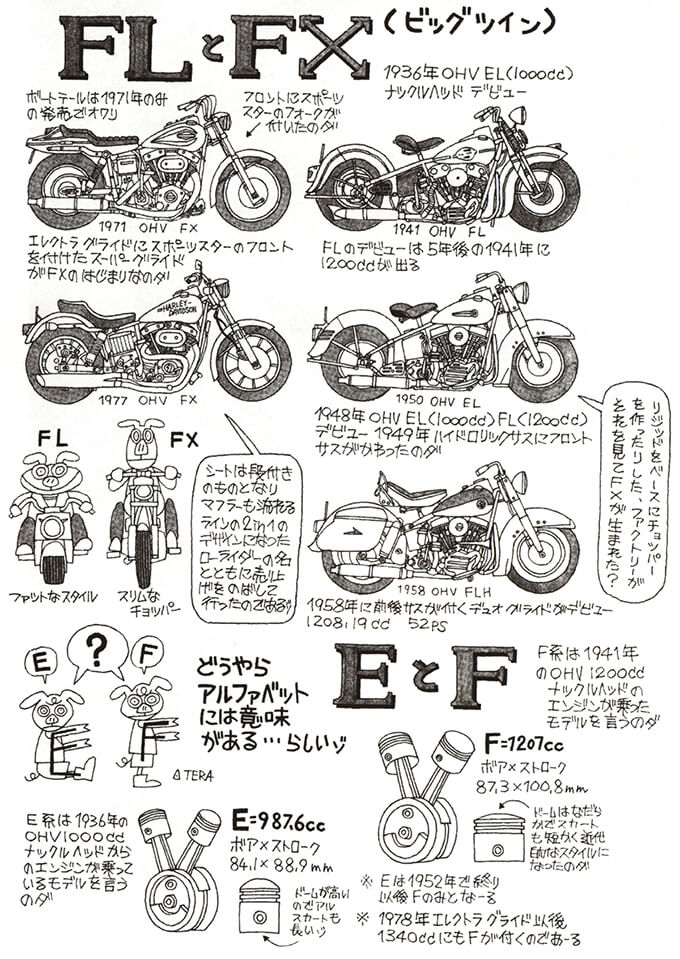 FLとFX
(ビッグツイン)
1936年OHV EL(1000cc)
ナックルヘッド デビュー
ボートテールは1971年のみ
の発売でオワリ
フロントにスポーツ
スターのフォークが
付いたのダ
1971 OHV FX
エレクトラグライドにスポーツスターのフロント
を付けたスーパーグライド
がFXのはじまりなのダ
1941 OHV FL
FLのデビューは5年後の1941年に
1200ccが出る
HARLEY-
DAVIDSON
1977 OHV FX
1950 OHV EL
1948年OHV EL(1000cc)FL(1200cc)
デビュー 1949年ハイドロリックサスにフロント
サスがかわったのダ
リジッドをベースにチョッパー
を作ったりした、ファクトリーが
それを見てFXが生まれた?
FL
FX
ファットなスタイル
スリムな
チョッパー
シートは段付き
のものとなり
マフラーも流れる
ラインの2in1の
デザインになった
ローライダーの名
とともに売り上
げをのばして
行ったのであるゾ
1958 OHV FLH
1958年に前後サスが付くデュオグライドがデビュー
1208.19cc 52PS
E
?
F
E
F
△TERA
どうやら
アルファベット
には意味
がある…らしいゾ
EとF
F系は1941年
のOHV 1200cc
ナックルヘッドの
エンジンが乗った
モデルを言うのダ
F=1207cc
ボア×ストローク
87.3×100.8mm
ドームはなだら
かでスカート
も短かく近代
的なスタイルに
なったのダ
E系は1936年の
OHV1000cc
ナックルヘッドから
のエンジンが乗って
いるモデルを言う
のダ
E=987.6cc
ボア×ストローク
84.1×88.9mm
ドームが高い
のでアル
スカートも
長いゾ
※ Eは1952年で終り
以後Fのみとなーる
※ 1978年エレクトラグライド以後
1340ccにもFが付くのであーる